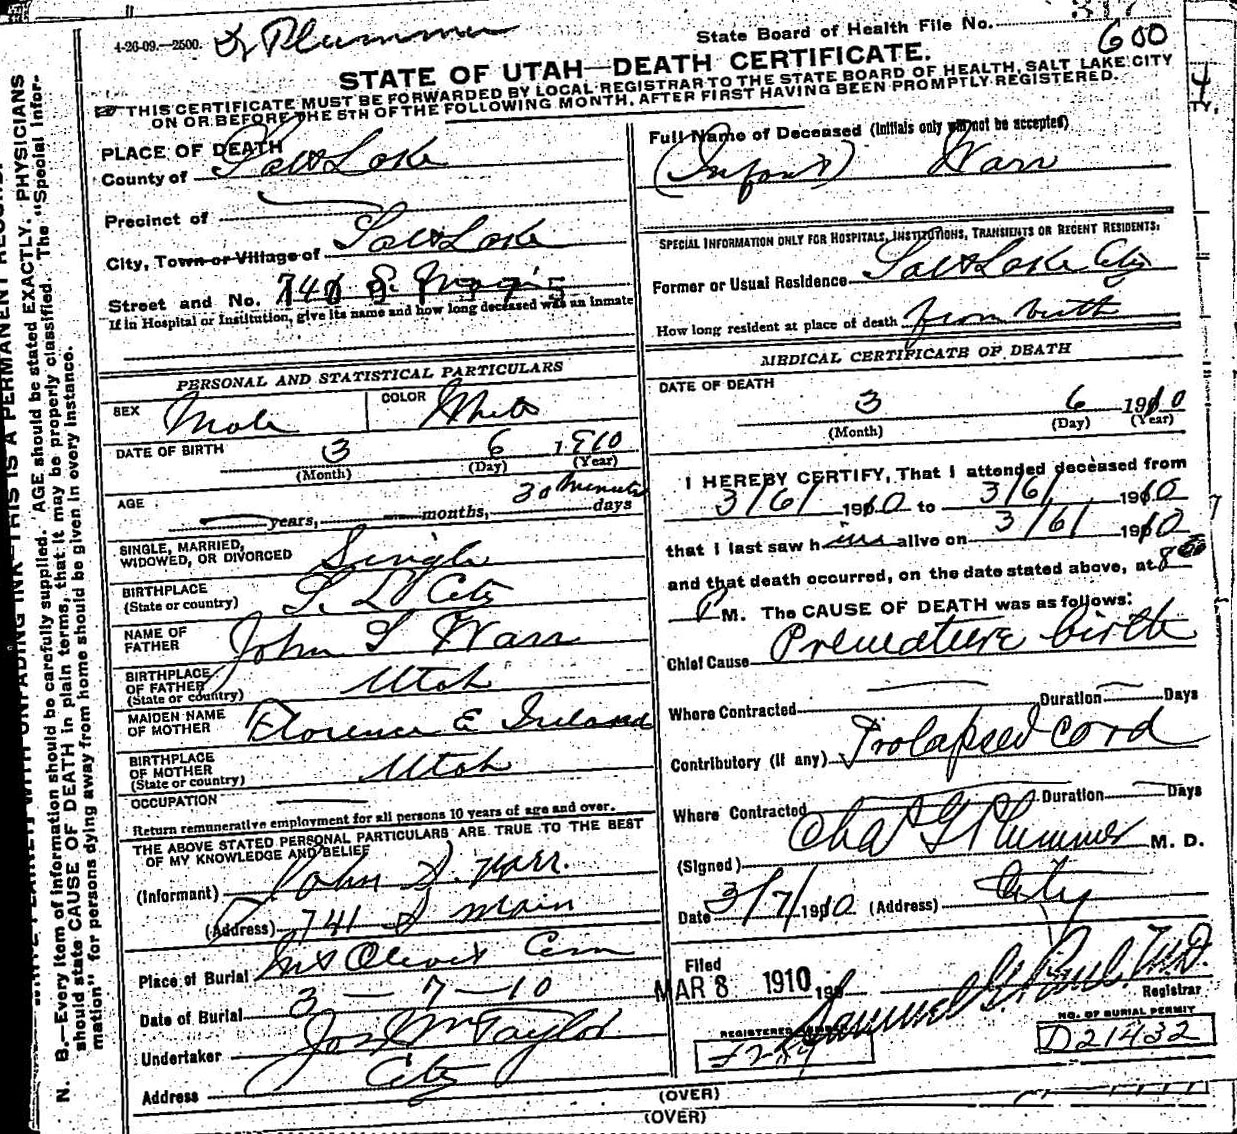 4-26-09.—2500. Dr Plummer
State Board of Health File No.
600
STATE OF UTAH—DEATH CERTIFICATE.
THIS CERTIFICATE MUST BE FORWARDED BY LOCAL REGISTRAR TO THE STATE BOARD OF HEALTH, SALT LAKE CITY
ON OR BEFORE THE 5TH OF THE FOLLOWING MONTH, AFTER FIRST HAVING BEEN PROMPTLY REGISTERED.
PLACE OF DEATH
County of Salt Lake
Precinct of
City, Town or Village of Salt Lake
Street and No. 741 S. Main
If in Hospital or Institution, give its name and how long deceased was an inmate
PERSONAL AND STATISTICAL PARTICULARS
SEX Male COLOR White
DATE OF BIRTH 3 6 1910
(Month) (Day) (Year)
AGE 30 minutes
years, months, days
SINGLE, MARRIED,
WIDOWED, OR DIVORCED Single
BIRTHPLACE
(State or country) S. L. City
NAME OF
FATHER John S Warr
BIRTHPLACE
OF FATHER
(State or country) Utah
MAIDEN NAME
OF MOTHER Florence E Ireland
BIRTHPLACE
OF MOTHER
(State or country) Utah
OCCUPATION
Return remunerative employment for all persons 10 years of age and over.
THE ABOVE STATED PERSONAL PARTICULARS ARE TRUE TO THE BEST
OF MY KNOWLEDGE AND BELIEF
(Informant) John S. Warr.
(Address) 741 S Main
Place of Burial Mt Olivet Cem
Date of Burial 3-7-10
Undertaker Jos Wm Taylor
Address City
Full Name of Deceased (Initials only will not be accepted)
(Infant) Warr
SPECIAL INFORMATION ONLY FOR HOSPITALS, INSTITUTIONS, TRANSIENTS OR RECENT RESIDENTS.
Former or Usual Residence Salt Lake City
How long resident at place of death from birth
MEDICAL CERTIFICATE OF DEATH
DATE OF DEATH
3 6 1910
(Month) (Day) (Year)
I HEREBY CERTIFY, That I attended deceased from
3/6/ 1910 to 3/6/ 1910
that I last saw him alive on 3/6/ 1910
and that death occurred, on the date stated above, at 8 00
P M. The CAUSE OF DEATH was as follows:
Chief Cause Premature birth
Where Contracted Duration Days
Contributory (if any) Prolapsed cord
Where Contracted Duration Days
(Signed) Chas G Plummer M. D.
Date 3/7/1910 (Address) City
Filed
MAR 8 1910 190
Samuel G. Paul. M.D.
Registrar
REGISTERED NUMBER
NO. OF BURIAL PERMIT
D21432
(OVER)
(OVER)
N. B.—Every item of information should be carefully supplied. AGE should be stated EXACTLY. PHYSICIANS
should state CAUSE OF DEATH in plain terms, that it may be properly classified. The "Special Infor-
mation" for persons dying away from home should be given in every instance.